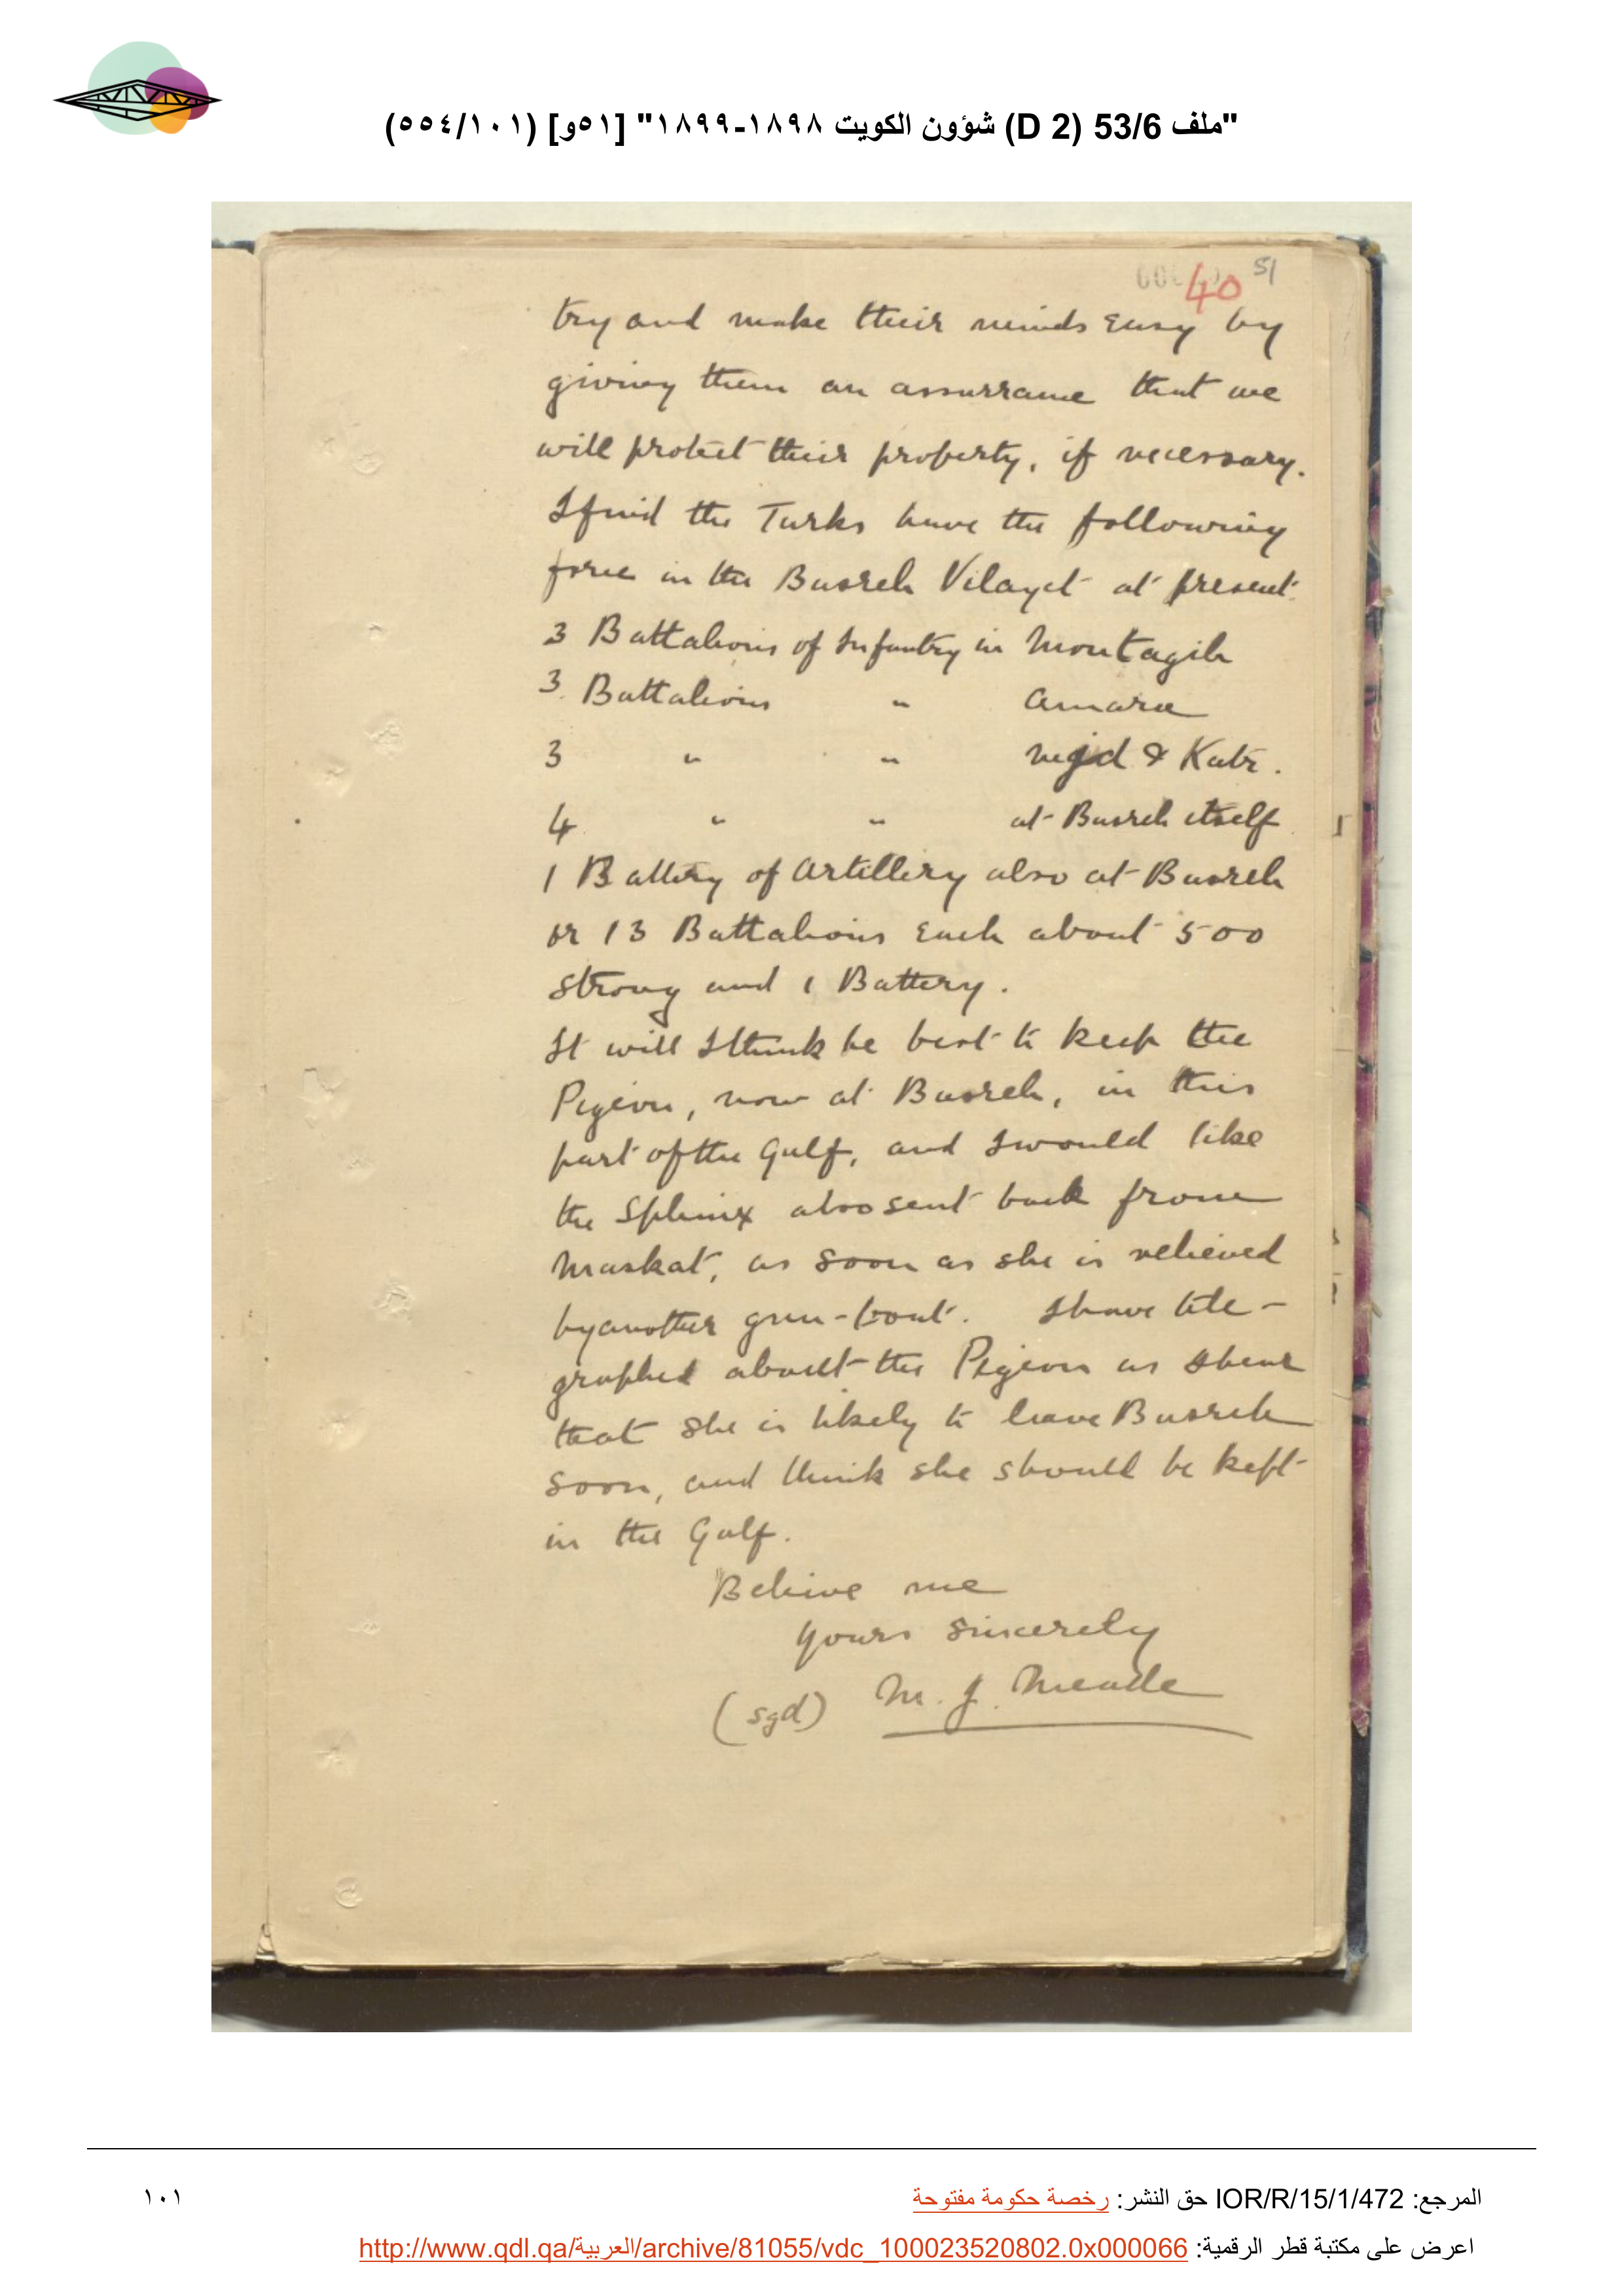 "ملف 53/6 (D 2) شؤون الكويت ١٨٩٨-١٨٩٩" [٥١و] (٥٥٤/١٠١)
40 51
try and make their minds easy by
giving them an assurrance that we
will protect their property, if necessary.
I find the Turks have the following
force in the Busreh Vilayet at present.
3 Battalions of Infantry in Montagih
3 Battalions " Amara
3 " " Nejd & Katr.
4 " " at Busreh itself
1 Battery of Artillery also at Busreh
or 13 Battalions each about 500
strong and 1 Battery.
It will I think be best to keep the
Pigeon, now at Busreh, in this
part of the Gulf, and I would like
the Sphinx also sent back from
Maskat, as soon as she is relieved
by another gun-boat. I have tele-
graphed about the Pigeon as I hear
that she is likely to leave Busreh
soon, and think she should be kept
in the Gulf.
Believe me
yours sincerely
(sgd) M. J. Meade
المرجع: IOR/R/15/1/472 حق النشر: رخصة حكومة مفتوحة
١٠١
اعرض على مكتبة قطر الرقمية: http://www.qdl.qa/العربية/archive/81055/vdc_100023520802.0x000066